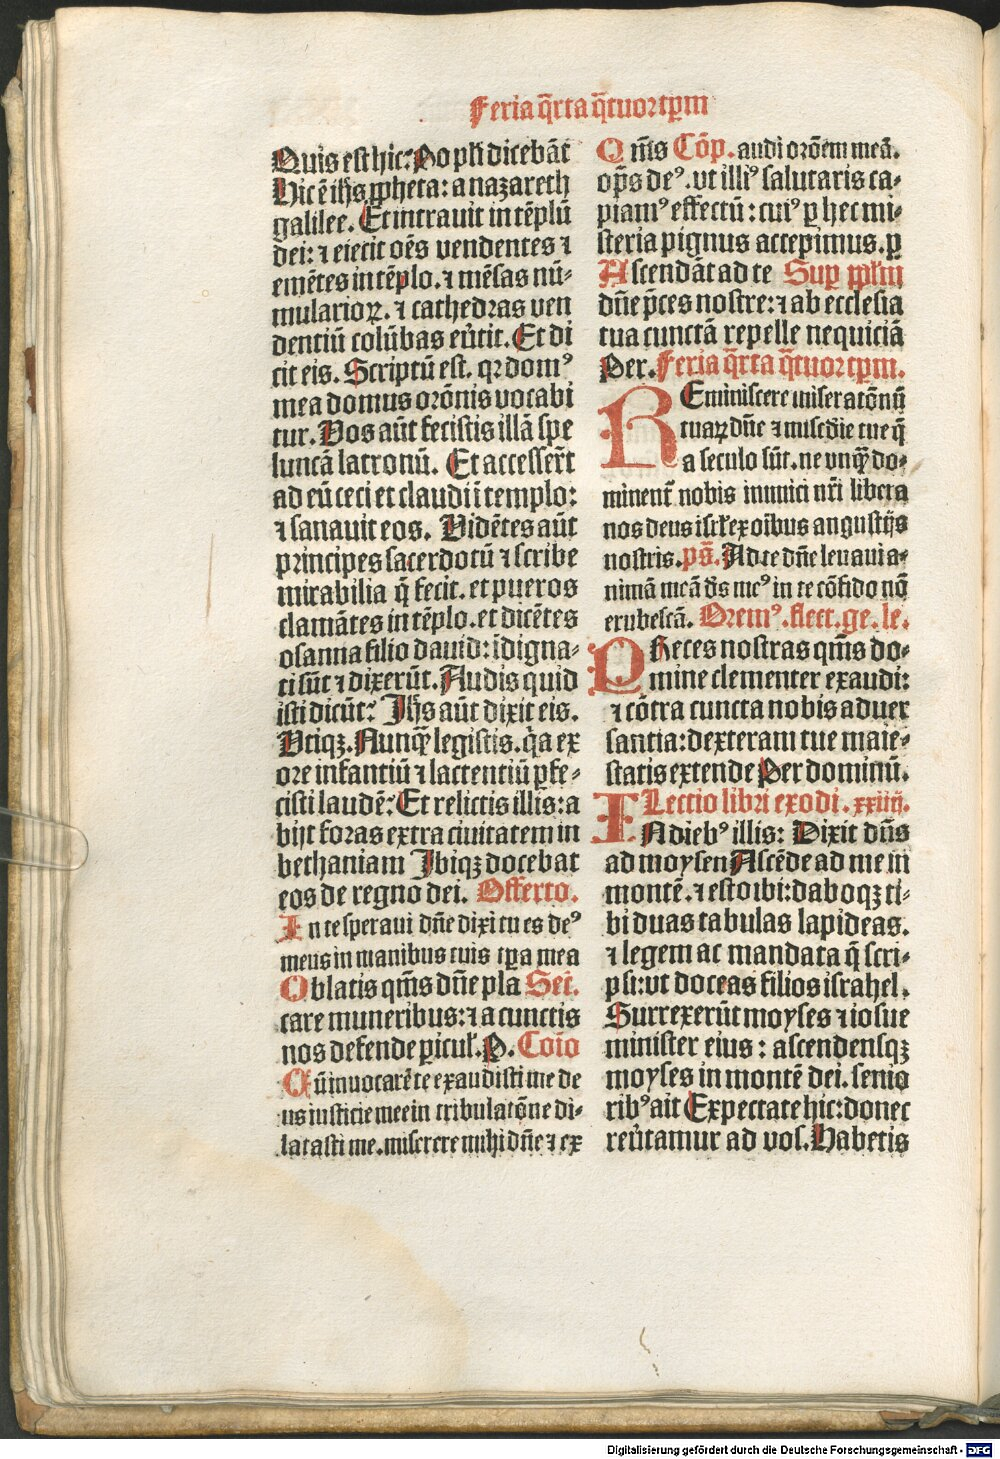 Feria q̄rta q̄tuortꝑm
Quis est hic: Po pl'i dicebāt
Hic ē ih̄s ꝓpheta: a nazareth
galilee. Et intrauit in tēplū
dei: ⁊ eiecit oēs vendentes ⁊
emētes in tēplo. ⁊ mēsas nū⸗
mularioꝝ. ⁊ cathedras ven
dentiū colūbas eůtit. Et di
cit eis. Scriptū est. qꝛ domꝰ
mea domus orōnis vocabi
tur. Vos aūt fecistis illā spe
luncā latronū. Et accesser̄t
ad eū ceci et claudi ī templo:
⁊ sanauit eos. Vidētes aūt
principes sacerdotū ⁊ scribe
mirabilia q̄ fecit. et pueros
clamātes in tēplo. et dicētes
osanna filio dauid: īdigna⸗
ti sūt ⁊ dixerūt. Audis quid
isti dicūt: Ih̄s aūt dixit eis.
Vtiqꝫ. Nunqꝫ legistis. q̇a ex
ore infantiū ⁊ lactentiū ꝑfe⸗
cisti laudē: Et relictis illis: a
bijt foras extra ciuitatem in
bethaniam Ibiqꝫ docebat
eos de regno dei. Offerto.
In te speraui dn̄e dixi tu es deꝰ
meus in manibus tuis tꝑa mea
Oblatis qm̄s dn̄e pla Scī.
care muneribus: ⁊ a cunctis
nos defende ꝑicul'. P. Coīo
Cū inuocarē te exaudisti me de
us iusticie mee in tribulatōne di⸗
latasti me. miserere mihi dn̄e ⁊ ex
Om̄s Cōp. audi orōem meā.
op̄s deꝰ. vt illiꝰ salutaris ca⸗
piamꝰ effectū: cuiꝰ ꝑ hec mi⸗
steria pignus accepimus. ꝑ
Ascendāt ad te Suꝑ pplm̄
dn̄e p̄ces nostre: ⁊ ab ecclesia
tua cunctā repelle nequiciā
Per. Feria q̄rta q̄tuortꝑm.
REminiscere miseratōnū
tuaꝝ dn̄e ⁊ misc̄die tue q̄
a seculo sūt. ne vnqꝫ do⸗
minent' nobis inimici nr̄i libera
nos deus isrl' ex oībus angustijs
nostris. ps̄. Ad te dn̄e leuaui a⸗
nimā meā d̄s meꝰ in te cōfido nō
erubescā. Oremꝰ. flect. ge. le.
PReces nostras qm̄s do⸗
mine clementer exaudi:
⁊ cōtra cuncta nobis aduer
santia: dexteram tue maie⸗
statis extende Per dominū.
Lectio libri exodi. xxiiij.
INdiebꝰ illis: Dixit dn̄s
ad moysen Ascēde ad me in
montē. ⁊ esto ibi: daboqꝫ ti⸗
bi duas tabulas lapideas.
⁊ legem ac mandata q̄ scri⸗
psi: vt doceas filios israhel.
Surrexerūt moyses ⁊ iosue
minister eius: ascendensqꝫ
moyses in montē dei. senio
ribꝰ ait Expectate hic: donec
reůtamur ad vos. Habetis
Digitalisierung gefördert durch die Deutsche Forschungsgemeinschaft - DFG